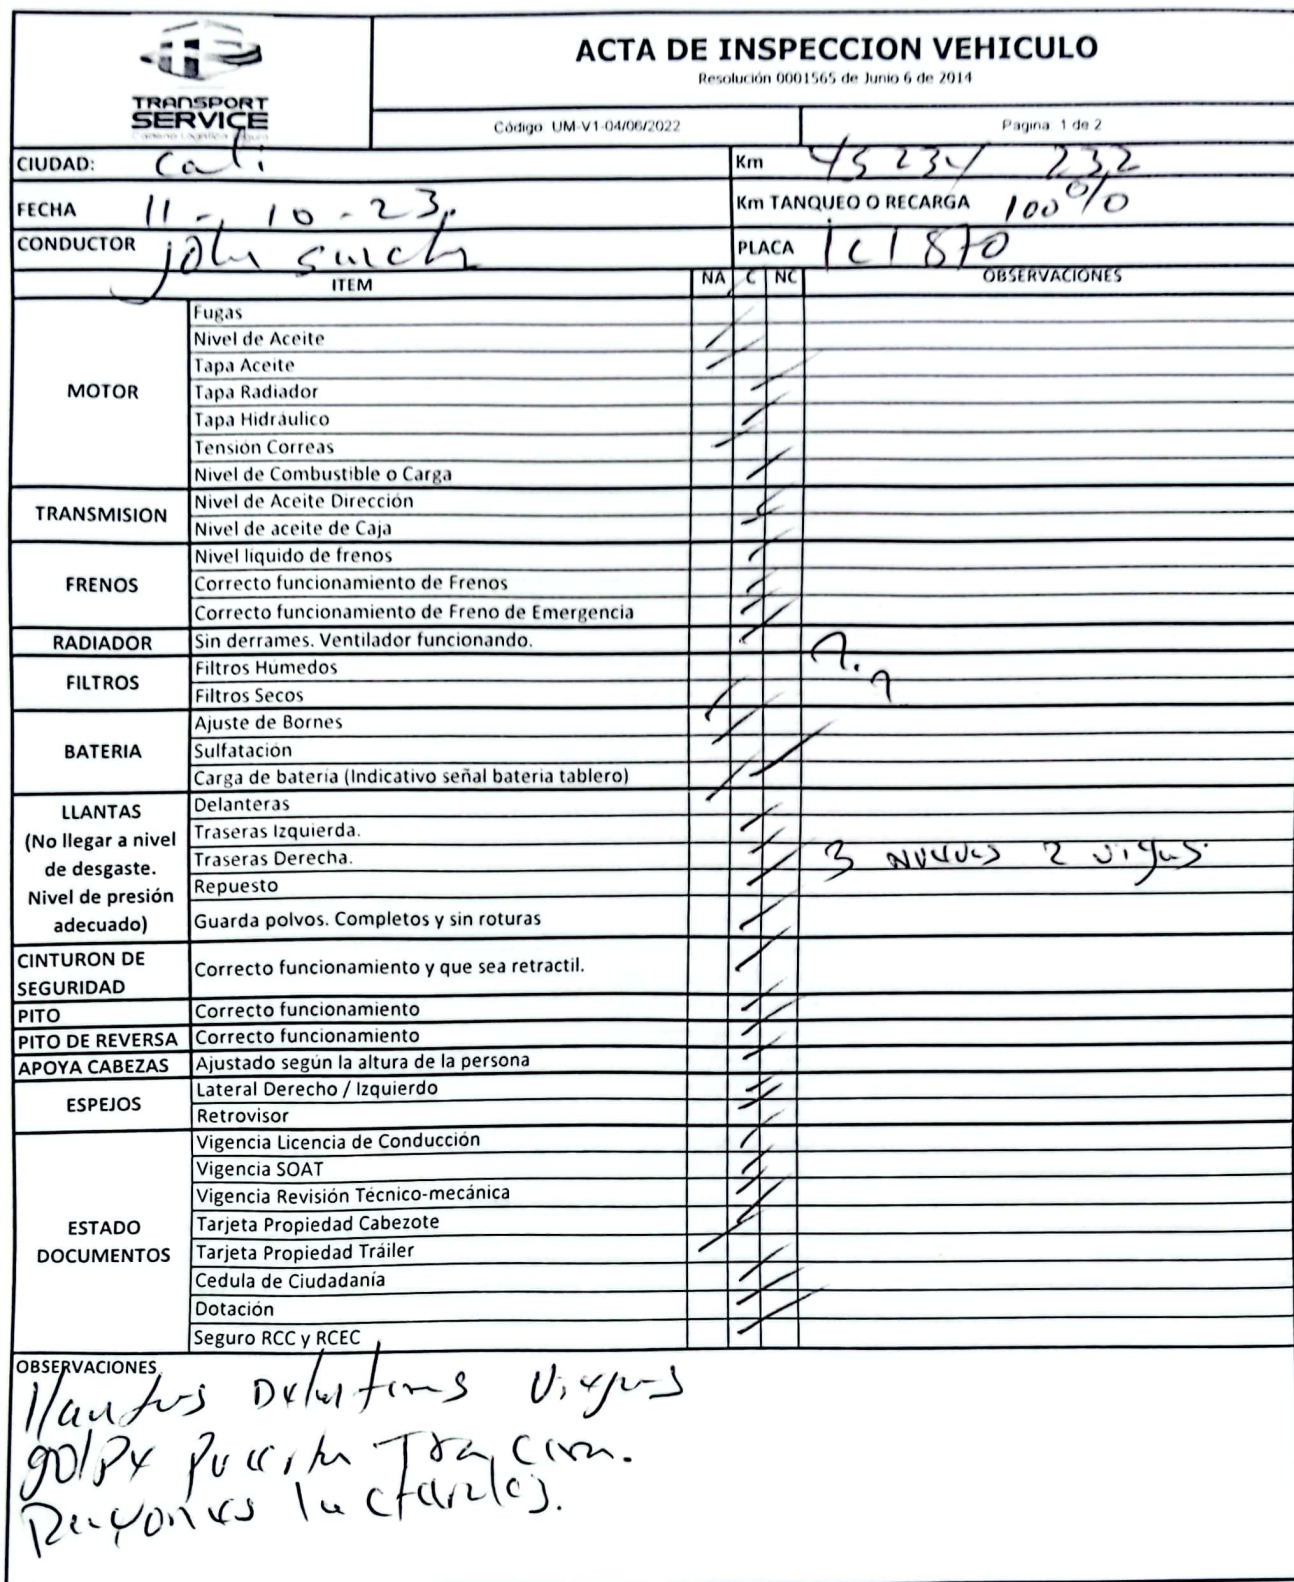 TRANSPORT
SERVICE
ACTA DE INSPECCION VEHICULO
Resolución 0001565 de Junio 6 de 2014
Código UM-V1-04/06/2022
Pagina 1 de 2
CIUDAD: Cali
Km 45234 232
FECHA 11-10-23.
Km TANQUEO O RECARGA 100%
CONDUCTOR john
PLACA
ITEM NA C NC OBSERVACIONES
MOTOR
Fugas
Nivel de Aceite
Tapa Aceite
Tapa Radiador
Tapa Hidráulico
Tensión Correas
Nivel de Combustible o Carga
TRANSMISION
Nivel de Aceite Dirección
Nivel de aceite de Caja
FRENOS
Nivel liquido de frenos
Correcto funcionamiento de Frenos
Correcto funcionamiento de Freno de Emergencia
RADIADOR
Sin derrames. Ventilador funcionando.
FILTROS
Filtros Húmedos
Filtros Secos
BATERIA
Ajuste de Bornes
Sulfatación
Carga de bateria (Indicativo señal bateria tablero)
LLANTAS
(No llegar a nivel
de desgaste.
Nivel de presión
adecuado)
Delanteras
Traseras Izquierda.
Traseras Derecha. 3 nuevas 2 viejas
Repuesto
Guarda polvos. Completos y sin roturas
CINTURON DE
SEGURIDAD
Correcto funcionamiento y que sea retractil.
PITO
Correcto funcionamiento
PITO DE REVERSA
Correcto funcionamiento
APOYA CABEZAS
Ajustado según la altura de la persona
ESPEJOS
Lateral Derecho / Izquierdo
Retrovisor
ESTADO
DOCUMENTOS
Vigencia Licencia de Conducción
Vigencia SOAT
Vigencia Revisión Técnico-mecánica
Tarjeta Propiedad Cabezote
Tarjeta Propiedad Tráiler
Cedula de Ciudadanía
Dotación
Seguro RCC y RCEC
OBSERVACIONES
llantas Delanteras Viejas
golpe puerta Tracera.
Rayones laterales.